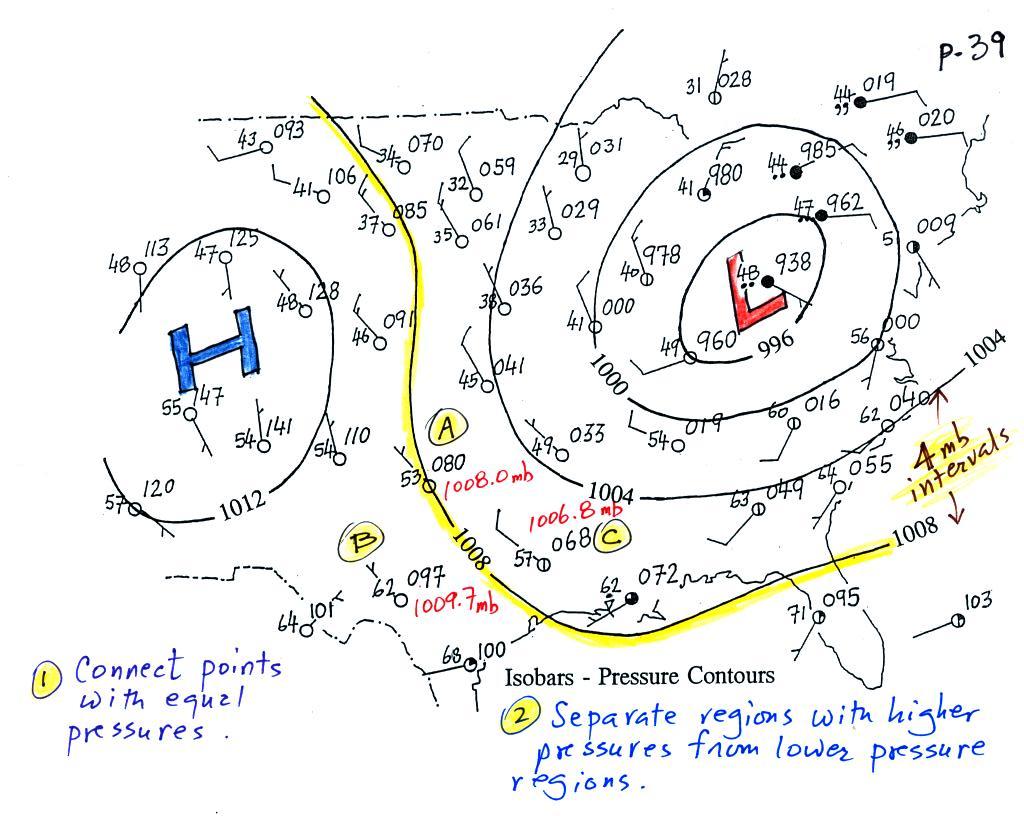 P-39
31 028
44 019
,,
46 020
,,
43 093
34 070
29 031
44 985
41 106
32 059
41 980
47 962
37 085
35 061
33 029
009
48 113
47 125
48 128
40 978
48 938
036
46 091
41 000
49 960
996
56 000
1004
H
L
45 041
1000
55 147
54 141
54 110
A
49 033
54 019
60 016
62 040
4 mb
intervals
53 080
1008.0 mb
1004
64 055
63 049
57 120
1012
1006.8 mb
1008
B
1008
57 068 C
62 097
1009.7 mb
62 072
64 101
71 095
103
68 100
Isobars - Pressure Contours
1 Connect points
with equal
pressures .
2 Separate regions with higher
pressures from lower pressure
regions.